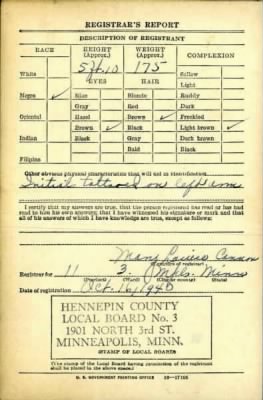 REGISTRAR'S REPORT
DESCRIPTION OF REGISTRANT
RACE HEIGHT (Approx.) WEIGHT (Approx.) COMPLEXION
5 ft. 10 175
White EYES HAIR Sallow
Light
Negro ✓ Blue Blonde Ruddy
Gray Red Dark
Oriental Hazel Brown ✓ Freckled
Brown ✓ Black Light brown ✓
Indian Black Gray Dark brown
Bald Black
Filipino
Other obvious physical characteristics that will aid in identification
Initial tattooed on left arm
I certify that my answers are true; that the person registered has read or has had
read to him his own answers; that I have witnessed his signature or mark and that
all of his answers of which I have knowledge are true, except as follows:
Mary Cannon
Registrar for 11 3 Mpls. Minn
(Precinct) (Ward) (City or county) (State)
Date of registration Oct. 16, 1940
HENNEPIN COUNTY
LOCAL BOARD No. 3
1901 NORTH 3rd ST.
MINNEAPOLIS, MINN.
(STAMP OF LOCAL BOARD)
(The stamp of the Local Board having jurisdiction of the registrant
shall be placed in the above space.)
U. S. GOVERNMENT PRINTING OFFICE 16—17105